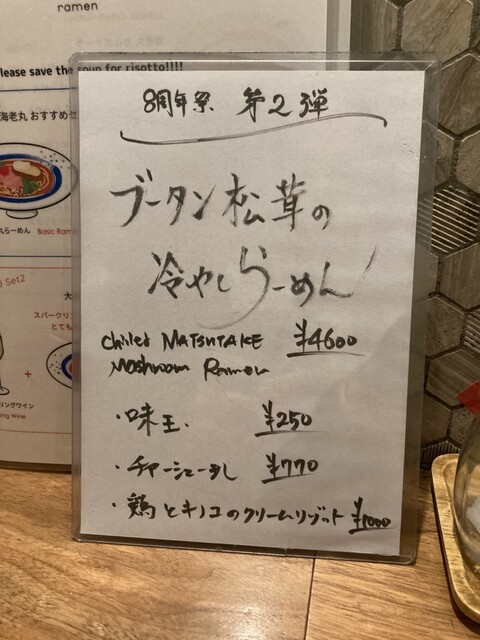 ramen
lease save the soup for risotto!!!!
海老丸 おすすめセ
8周年祭 第2弾
ブータン松茸の
冷やしらーめん
chilled MATSUTAKE ¥4600
Moshroom Ramen
・味玉. ¥250
・チャーシュー増し ¥770
・鶏とキノコのクリームリゾット ¥1000
丸らーめん Basic Rame
Set2
大
スパークリン
とても
+
リングワイン
ing Wine